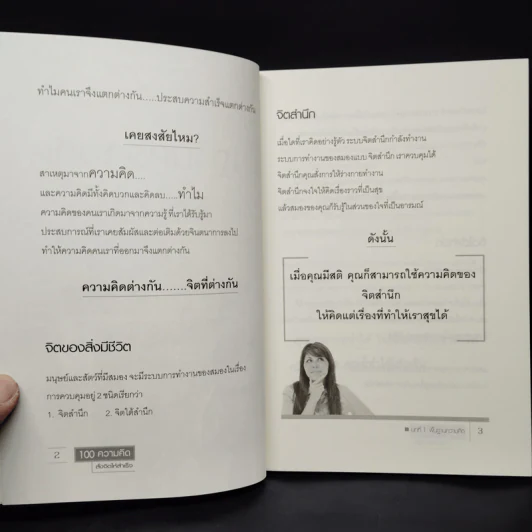 ทำไมคนเราจึงแตกต่างกัน.....ประสบความสำเร็จแตกต่างกัน
เคยสงสัยไหม?
สาเหตุมาจากความคิด....
และความคิดมีทั้งคิดบวกและคิดลบ.....ทำไม
ความคิดของคนเราเกิดมาจากความรู้ ที่เราได้รับรู้มา
ประสบการณ์ที่เราเคยสัมผัสและต่อเติมด้วยจินตนาการลงไป
ทำให้ความคิดคนเราที่ออกมาจึงแตกต่างกัน
ความคิดต่างกัน.......จิตที่ต่างกัน
จิตของสิ่งมีชีวิต
มนุษย์และสัตว์ที่มีสมอง จะมีระบบการทำงานของสมองในเรื่อง
การควบคุมอยู่ 2 ชนิดเรียกว่า
1. จิตสำนึก 2. จิตใต้สำนึก
2 100 ความคิด
จิตสำนึก
เมื่อใดที่เราคิดอย่างรู้ตัว ระบบจิตสำนึกกำลังทำงาน
ระบบการทำงานของสมองแบบ จิตสำนึก เราควบคุมได้
จิตสำนึกคุณสั่งการให้ร่างกายทำงาน
จิตสำนึกจงใจให้คิดเรื่องราวที่เป็นสุข
แล้วสมองของคุณก็รับรู้ในส่วนของใจที่เป็นอารมณ์
ดังนั้น
เมื่อคุณมีสติ คุณก็สามารถใช้ความคิดของ
จิตสำนึก
ให้คิดแต่เรื่องที่ทำให้เราสุขได้
บทที่ 1 พื้นฐานความคิด 3